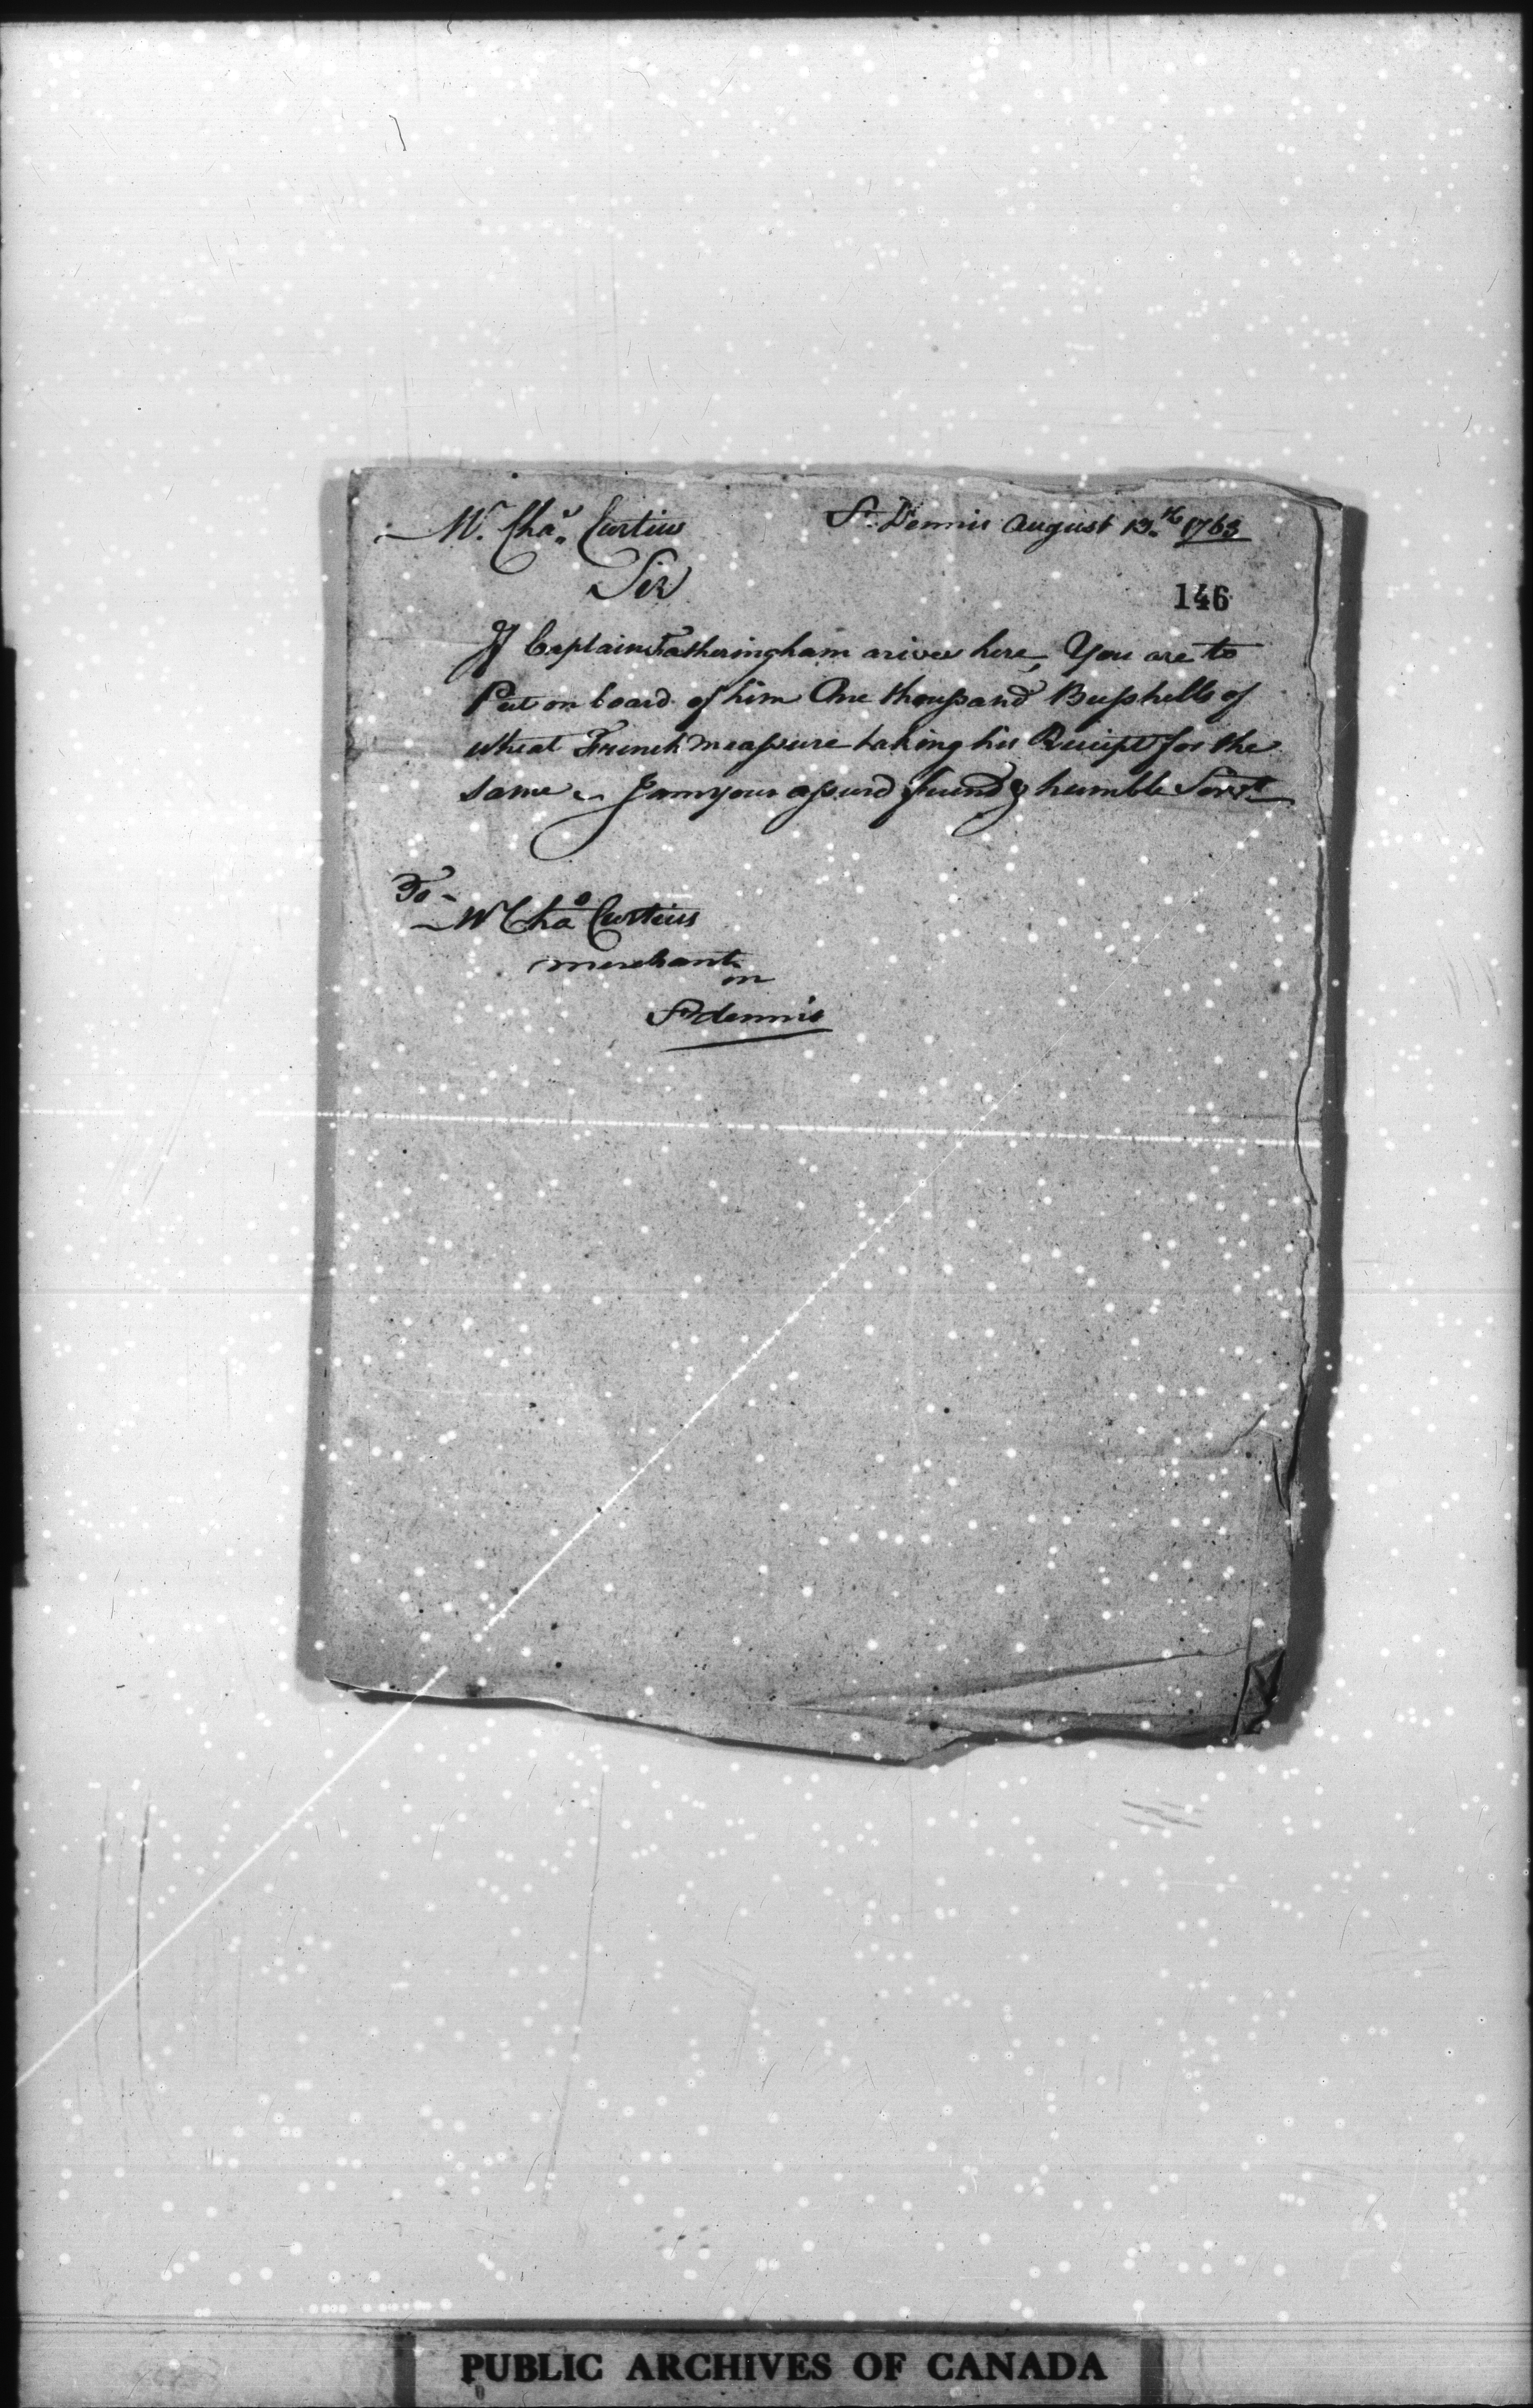 Mr. Chas. Curtius St. Dennis August 13.th 1763
Sir
146
If Captain Fatheringham arives here, You are to
Put on board of him One thousand Bushells of
wheat French measure taking his Receipt for the
same. I am your assurd friend & humble Servt
To
Mr Chas Curtius
merchant
in
St dennis
PUBLIC ARCHIVES OF CANADA